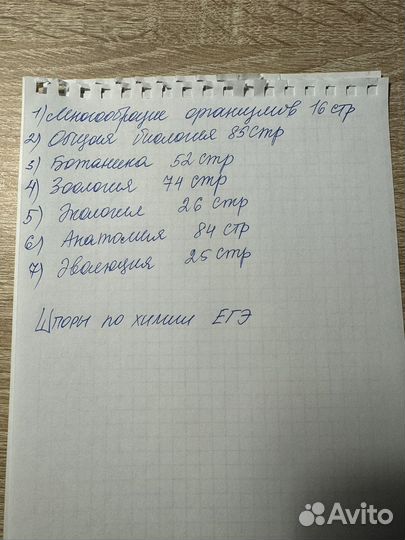 1) Многообразие организмов 16 стр
2) Общая биология 85 стр
3) Ботаника 52 стр
4) Зоология 74 стр
5) Экология 26 стр
6) Анатомия 84 стр
7) Эволюция 25 стр
Шпоры по химии ЕГЭ
Avito